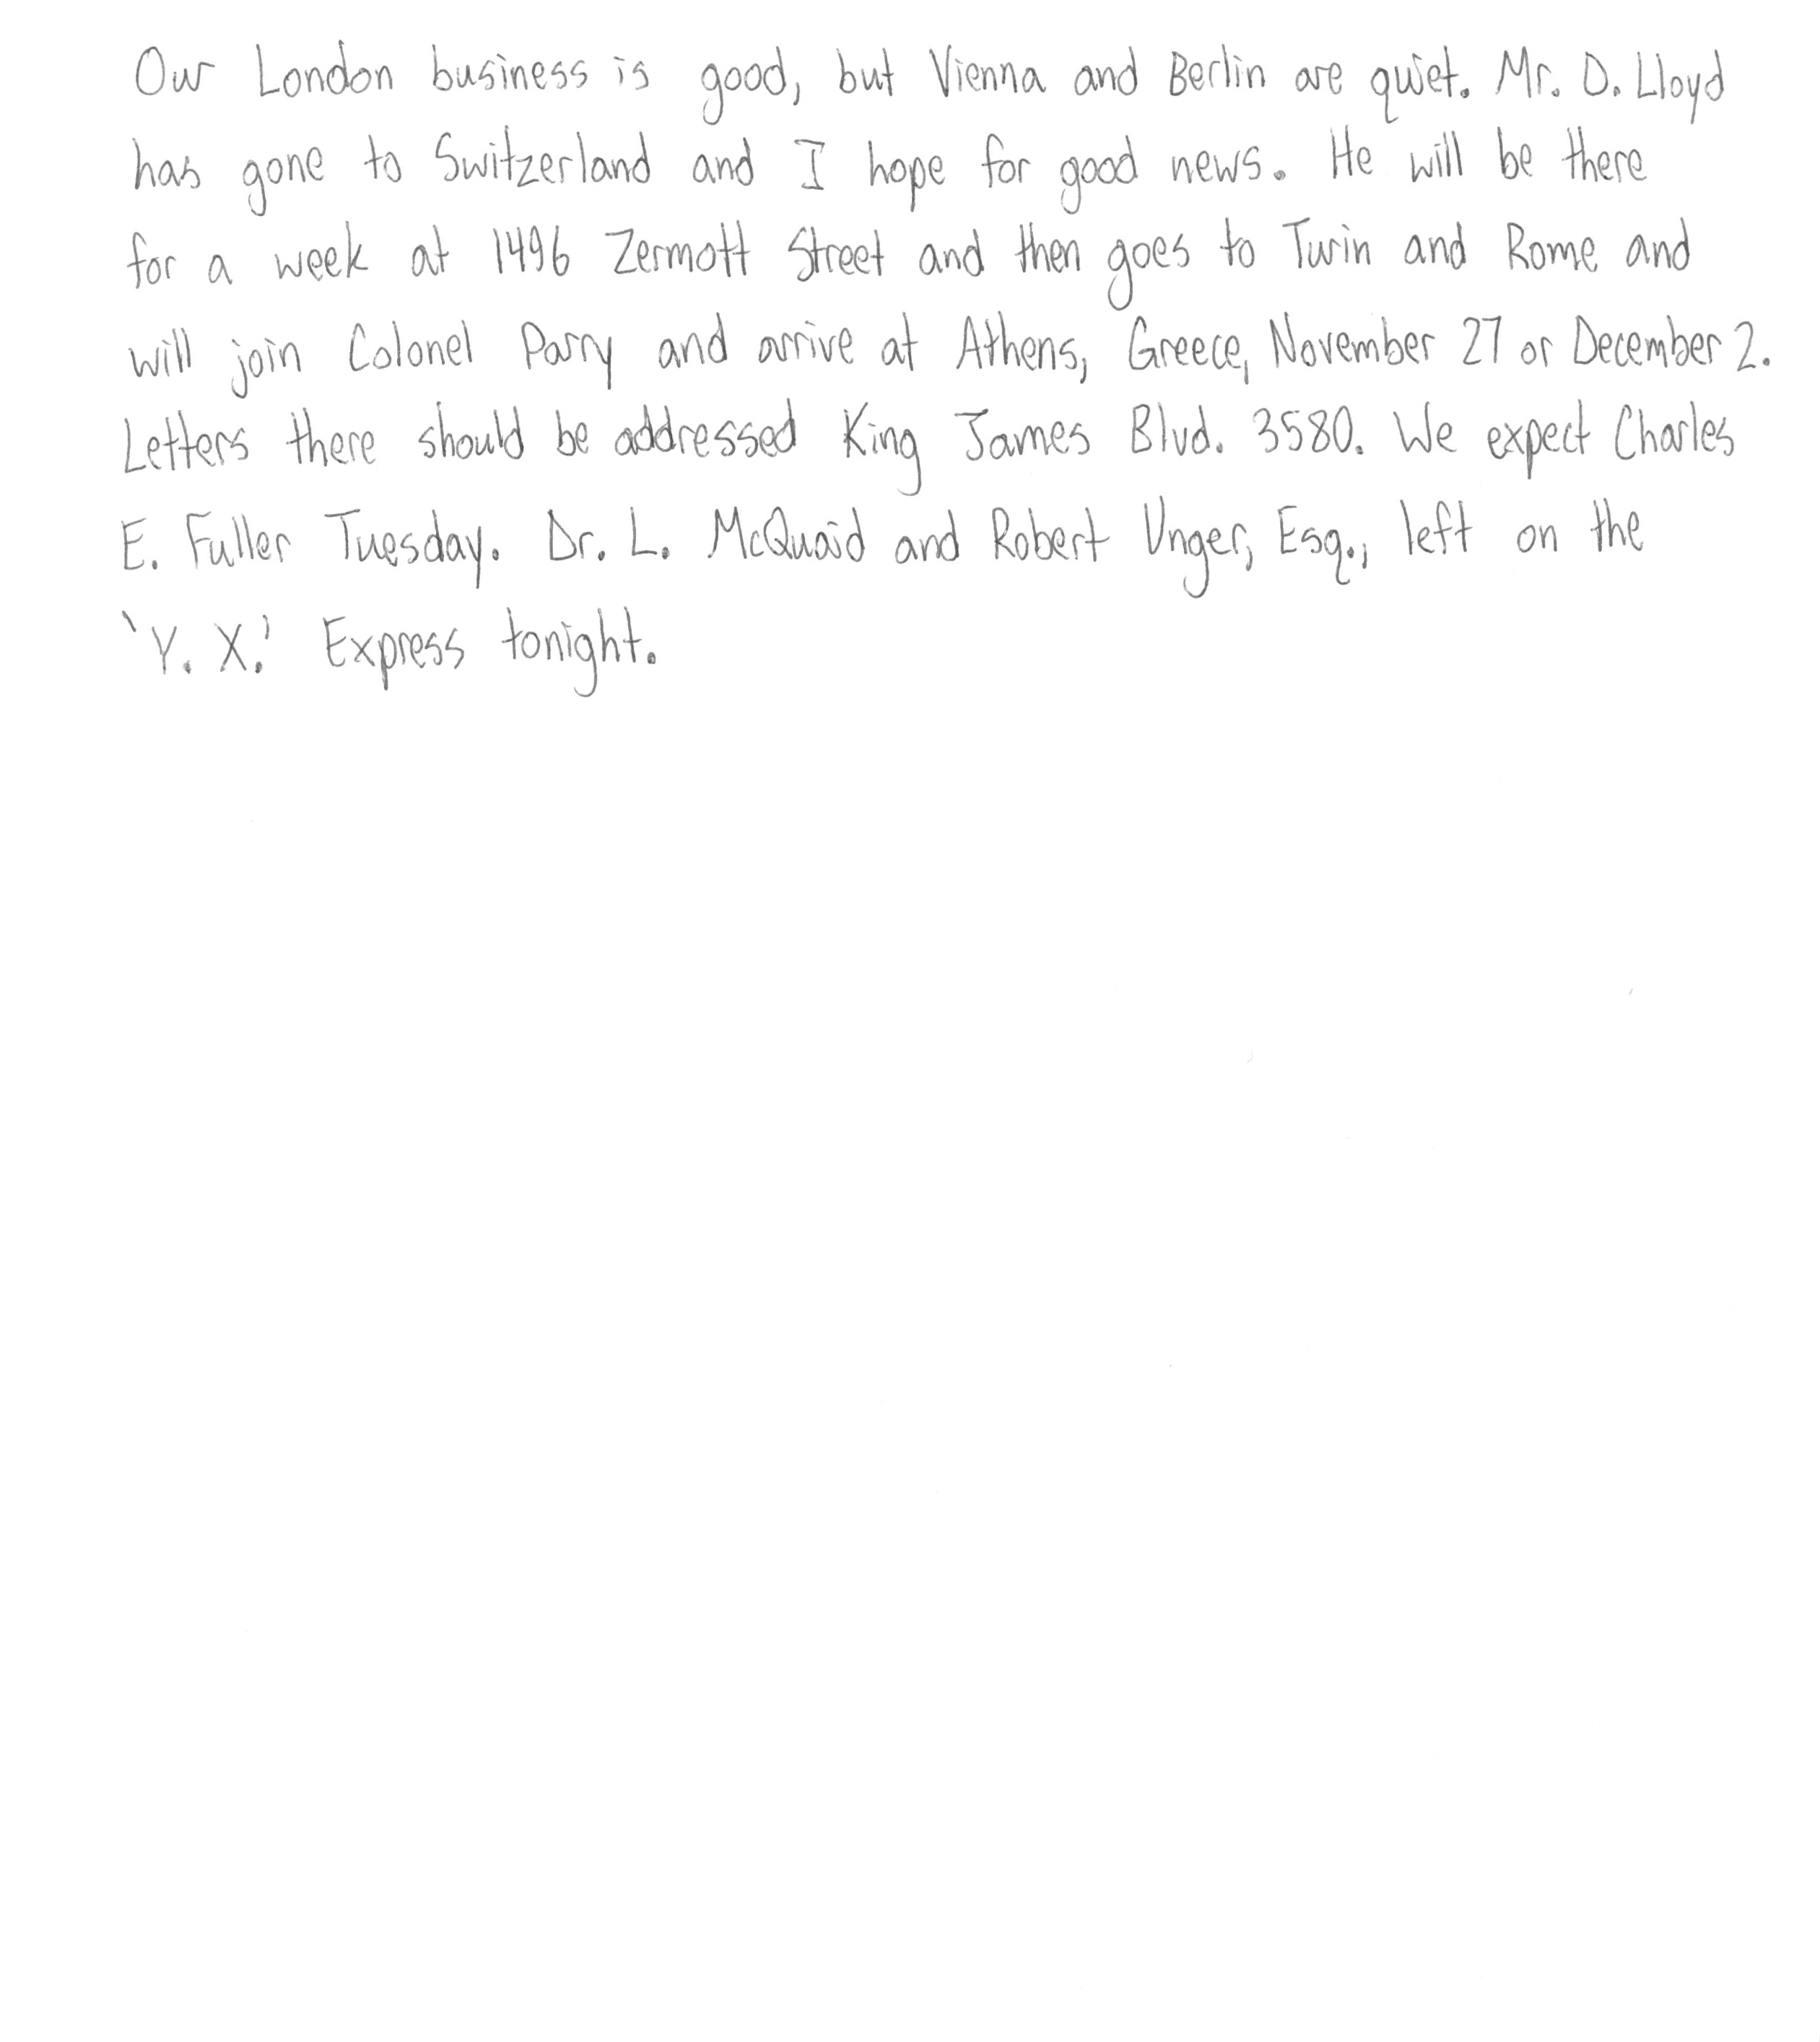 Our London business is good, but Vienna and Berlin are quiet. Mr. D. Lloyd
has gone to Switzerland and I hope for good news. He will be there
for a week at 1496 Zermott Street and then goes to Turin and Rome and
will join Colonel Parry and arrive at Athens, Greece, November 27 or December 2.
Letters there should be addressed King James Blvd. 3580. We expect Charles
E. Fuller Tuesday. Dr. L. McQuaid and Robert Unger, Esq., left on the
'Y. X.' Express tonight.